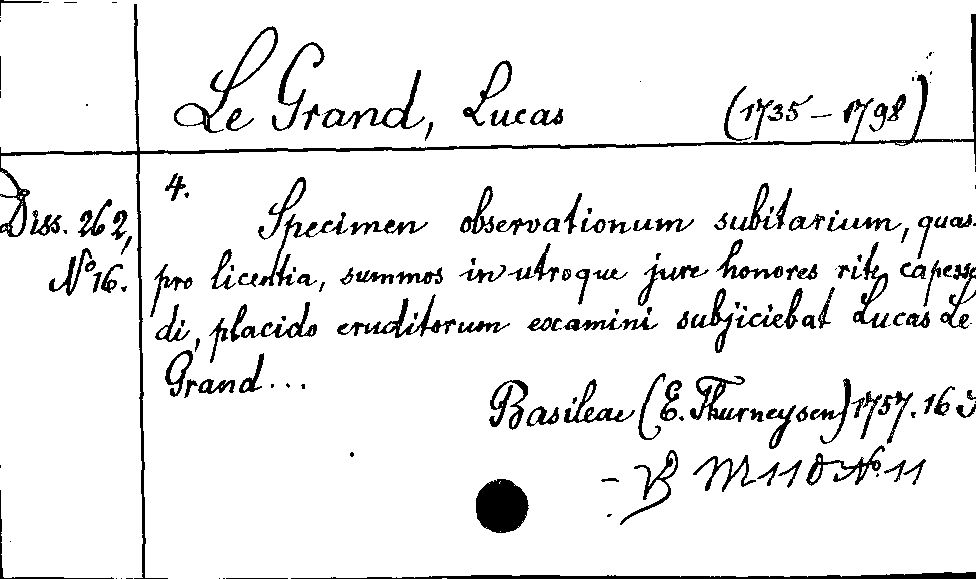 Le Grand, Lucas (1735-1798)
4.
Diss. 262,
No 16.
Specimen observationum subitarium, quas
pro licentia, summos in utroque jure honores rite capessen
di, placido eruditorum examini subjiciebat Lucas Le
Grand...
Basileae (E. Thurneysen) 1757. 16 S
- VB M 110 No. 11